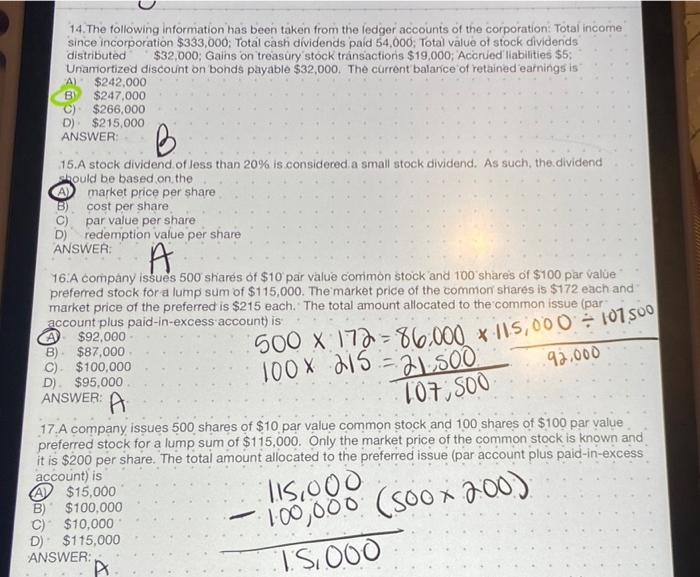 14.The following information has been taken from the ledger accounts of the corporation: Total income
since incorporation $333,000; Total cash dividends paid 54,000; Total value of stock dividends
distributed $32,000; Gains on treasury stock transactions $19,000; Accrued liabilities $5;
Unamortized discount on bonds payable $32,000. The current balance of retained earnings is
A) $242,000
B) $247,000
C) $266,000
D) $215,000
ANSWER: B
15.A stock dividend of less than 20% is considered a small stock dividend. As such, the dividend
should be based on the
A) market price per share
B) cost per share
C) par value per share
D) redemption value per share
ANSWER: A
16.A company issues 500 shares of $10 par value common stock and 100 shares of $100 par value
preferred stock for a lump sum of $115,000. The market price of the common shares is $172 each and
market price of the preferred is $215 each. The total amount allocated to the common issue (par
account plus paid-in-excess account) is
A) $92,000
B) $87,000
C) $100,000
D) $95,000
ANSWER: A
500 x 172 = 86,000 x 115,000 ÷ 107,500
100 x 215 = 21,500 92,000
107,500
17.A company issues 500 shares of $10 par value common stock and 100 shares of $100 par value
preferred stock for a lump sum of $115,000. Only the market price of the common stock is known and
it is $200 per share. The total amount allocated to the preferred issue (par account plus paid-in-excess
account) is
A) $15,000
B) $100,000
C) $10,000
D) $115,000
ANSWER: A
115,000
- 100,000 (500 x 200)
15,000